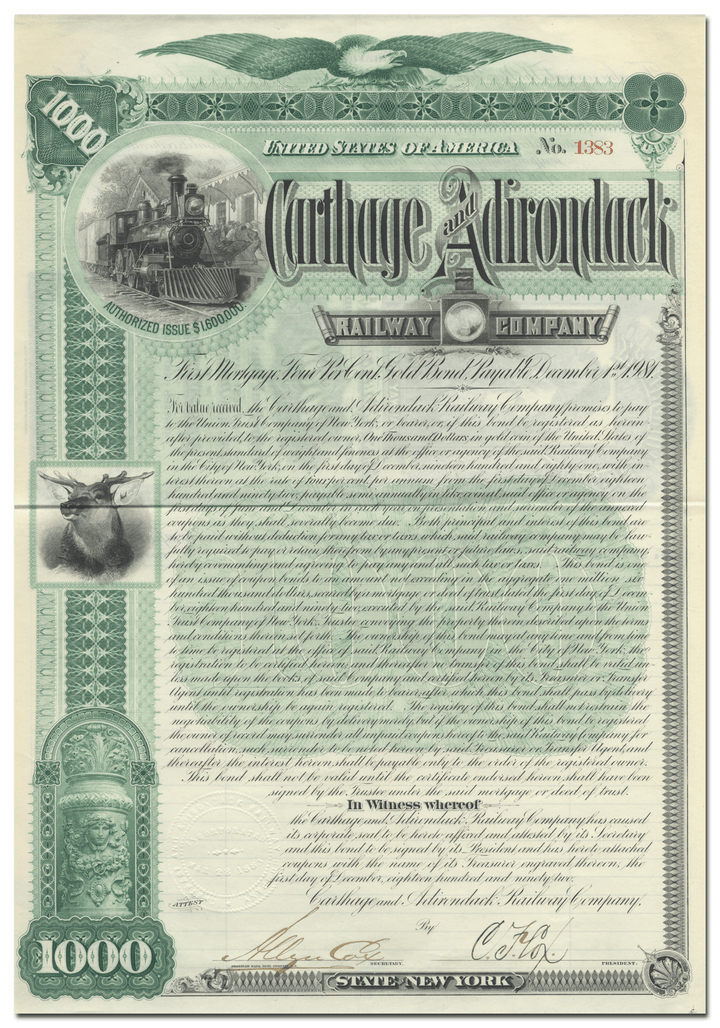 1000
UNITED STATES OF AMERICA No. 1383
Carthage and Adirondack
AUTHORIZED ISSUE $1,600,000.
RAILWAY COMPANY
First Mortgage, Four Per Cent. Gold Bond, Payable December 1st, 1981.
For value received, the Carthage and Adirondack Railway Company promises to pay
to the Union Trust Company of New York, or bearer, or, if this bond be registered as herein
after provided, to the registered owner, One Thousand Dollars, in gold coin of the United States of
the present standard of weight and fineness at the office or agency of the said Railway Company
in the City of New York, on the first day of December, nineteen hundred and eighty one, with in
terest thereon at the rate of four per cent per annum, from the first day of December eighteen
hundred and ninety two, payable semi annually in like coin at said office or agency on the
first days of June and December in each year on presentation and surrender of the annexed
coupons as they shall severally become due. Both principal and interest of this bond are
to be paid without deduction for any tax or taxes which said railway company may be law
fully required to pay, or retain therefrom by any present or future laws, said railway company
hereby covenanting and agreeing to pay any and all such tax or taxes. This bond is one
of an issue of coupon bonds to an amount not exceeding in the aggregate one million six
hundred thousand dollars, secured by a mortgage or deed of trust dated the first day of Decem
ber, eighteen hundred and ninety two, executed by the said Railway Company to the Union
Trust Company of New York, Trustee, conveying the property therein described upon the terms
and conditions therein set forth. The ownership of this bond may at any time and from time
to time be registered at the office of said Railway Company in the City of New York, the
registration to be certified hereon, and thereafter no transfer of this bond shall be valid un
less made upon the books of said Company and certified hereon by its Treasurer or Transfer
Agent until registration has been made to bearer, after which this bond shall pass by delivery
until the ownership be again registered. The registry of this bond shall not restrain the
negotiability of the coupons by delivery merely, but if the ownership of this bond be registered,
the owner of record may surrender all unpaid coupons hereof to the said Railway Company for
cancellation, such surrender to be noted hereon by said Treasurer or Transfer Agent, and
thereafter the interest hereon shall be payable only to the order of the registered owner.
This bond shall not be valid until the certificate endorsed hereon shall have been
signed by the Trustee under the said mortgage or deed of trust.
In Witness whereof
the Carthage and Adirondack Railway Company has caused
its corporate seal to be hereto affixed and attested by its Secretary
and this bond to be signed by its President and has hereto attached
coupons with the name of its Treasurer engraved thereon, the
first day of December, eighteen hundred and ninety two.
Carthage and Adirondack Railway Company.
ATTEST
By
Allyn Cox
C. F. Cox
SECRETARY.
PRESIDENT.
1000
STATE OF NEW YORK